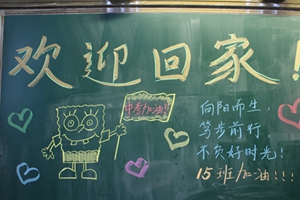 欢迎回家!
中考加油!
向阳而生,
笃步前行,
不负好时光!
15班加油!!!